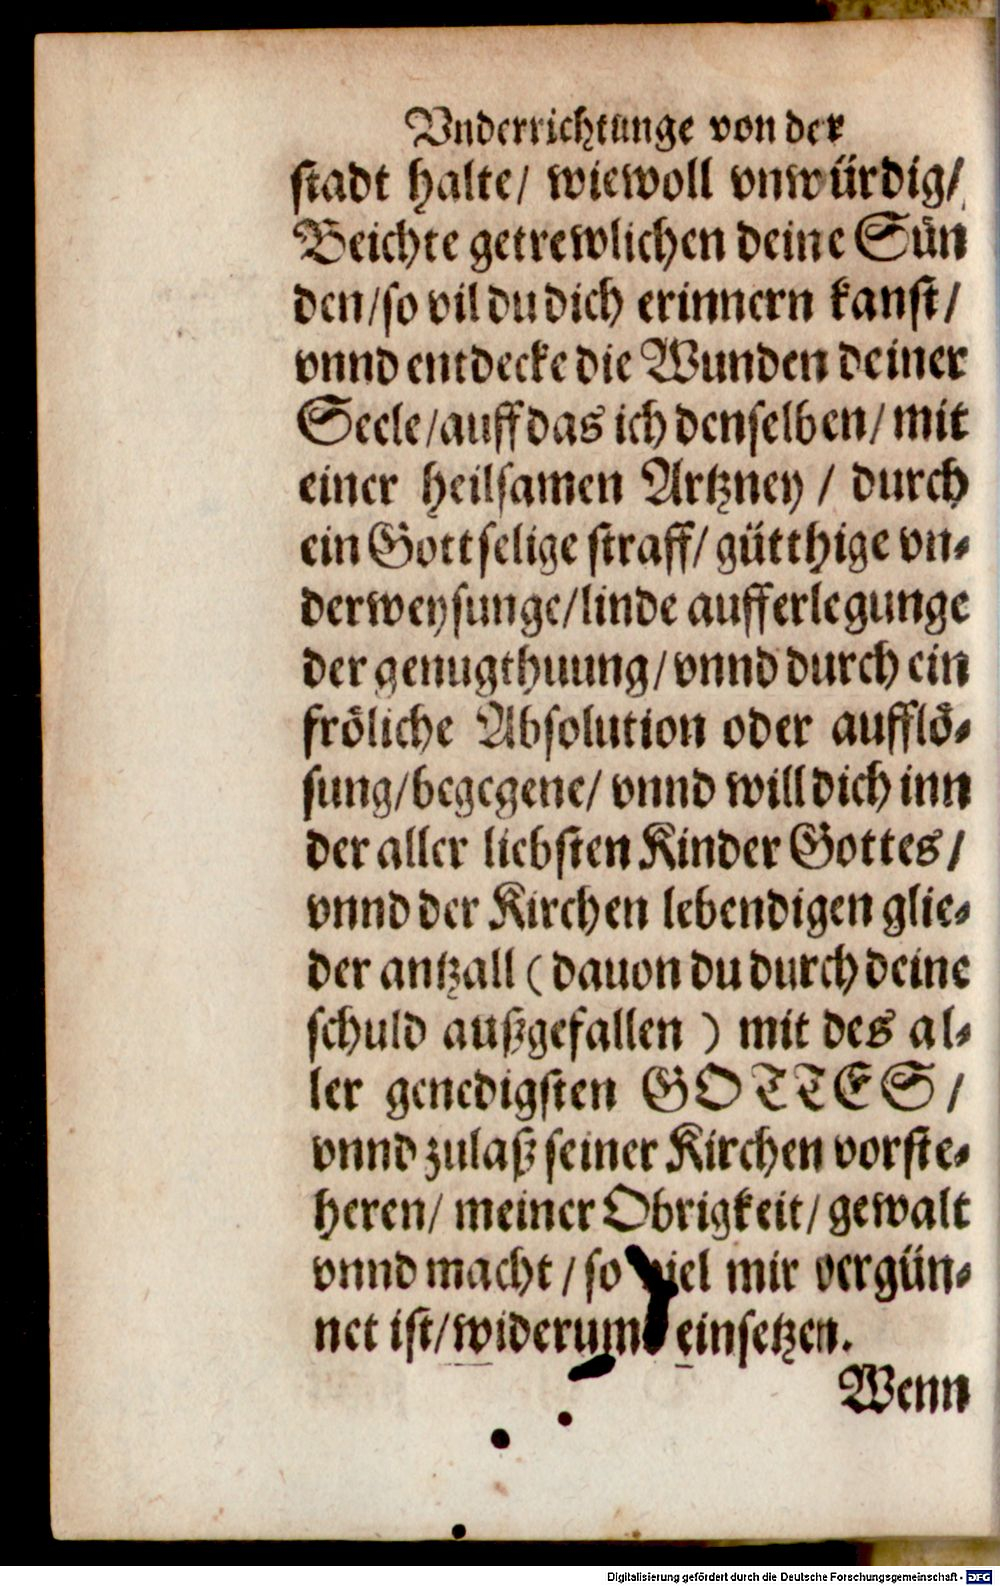 Vnderrichtunge von der
stadt halte/ wiewoll vnwürdig/
Beichte getrewlichen deine Sün
den/so vil du dich erinnern kanst/
vnnd entdecke die Wunden deiner
Seele/auff das ich denselben/ mit
einer heilsamen Artzney / durch
ein Gottselige straff/ gütthige vn⸗
derweysunge/linde aufferlegunge
der genugthuung/vnnd durch ein
fröliche Absolution oder aufflö⸗
sung/begegene/ vnnd will dich inn
der aller liebsten Kinder Gottes/
vnnd der Kirchen lebendigen glie⸗
der antzall ( dauon du durch deine
schuld außgefallen ) mit des al⸗
ler genedigsten GOTTES /
vnnd zulaß seiner Kirchen vorste⸗
heren/ meiner Obrigkeit/ gewalt
vnnd macht / so viel mir vergün⸗
net ist/widerumb einsetzen.
Wenn
Digitalisierung gefördert durch die Deutsche Forschungsgemeinschaft - DFG